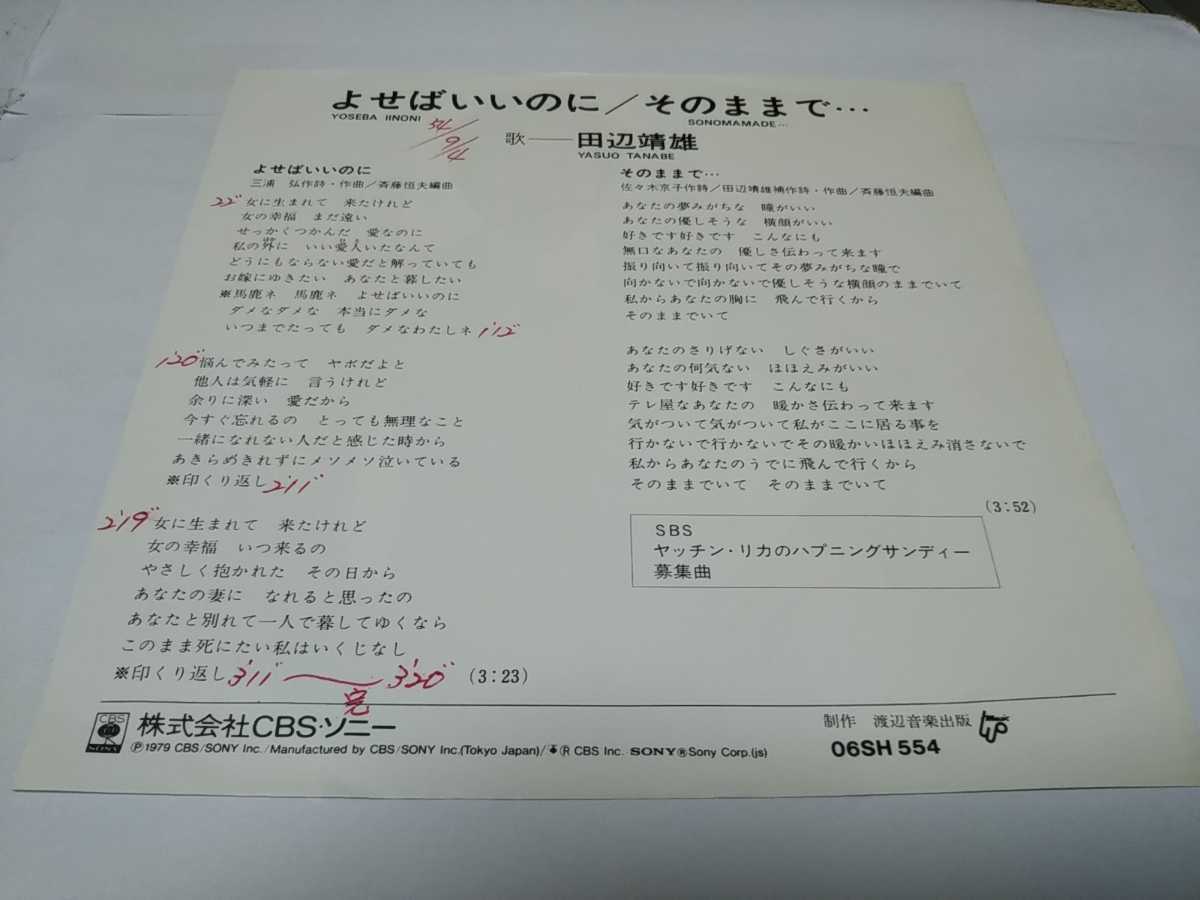 よせばいいのに／そのままで…
YOSEBA IINONI
SONOMAMADE…
54/9/4
歌——田辺靖雄
YASUO TANABE
よせばいいのに
三浦 弘作詩・作曲／斉藤恒夫編曲
22″ 女に生まれて 来たけれど
女の幸福 まだ遠い
せっかくつかんだ 愛なのに
私の外に いい愛人いたなんて
どうにもならない愛だと解っていても
お嫁にゆきたい あなたと暮したい
※馬鹿ネ 馬鹿ネ よせばいいのに
ダメなダメな 本当にダメな
いつまでたっても ダメなわたしネ 1′12″
1′20″ 悩んでみたって ヤボだよと
他人は気軽に 言うけれど
余りに深い 愛だから
今すぐ忘れるの とっても無理なこと
一緒になれない人だと感じた時から
あきらめきれずにメソメソ泣いている
※印くり返し 2′11″
2′19″ 女に生まれて 来たけれど
女の幸福 いつ来るの
やさしく抱かれた その日から
あなたの妻に なれると思ったの
あなたと別れて一人で暮してゆくなら
このまま死にたい私はいくじなし
※印くり返し 3′11″ 〜 3′20″ (3:23)
完
そのままで…
佐々木京子作詩／田辺靖雄補作詩・作曲／斉藤恒夫編曲
あなたの夢みがちな 瞳がいい
あなたの優しそうな 横顔がいい
好きです好きです こんなにも
無口なあなたの 優しさ伝わって来ます
振り向いて振り向いてその夢みがちな瞳で
向かないで向かないで優しそうな横顔のままでいて
私からあなたの胸に 飛んで行くから
そのままでいて
あなたのさりげない しぐさがいい
あなたの何気ない ほほえみがいい
好きです好きです こんなにも
テレ屋なあなたの 暖かさ伝わって来ます
気がついて気がついて私がここに居る事を
行かないで行かないでその暖かいほほえみ消さないで
私からあなたのうでに飛んで行くから
そのままでいて そのままでいて
(3:52)
SBS
ヤッチン・リカのハプニングサンディー
募集曲
CBS SONY 株式会社CBS・ソニー
Ⓟ1979 CBS/SONY Inc./Manufactured by CBS/SONY Inc.(Tokyo Japan)/Ⓡ CBS Inc. SONY®Sony Corp.(js)
制作 渡辺音楽出版
06SH 554